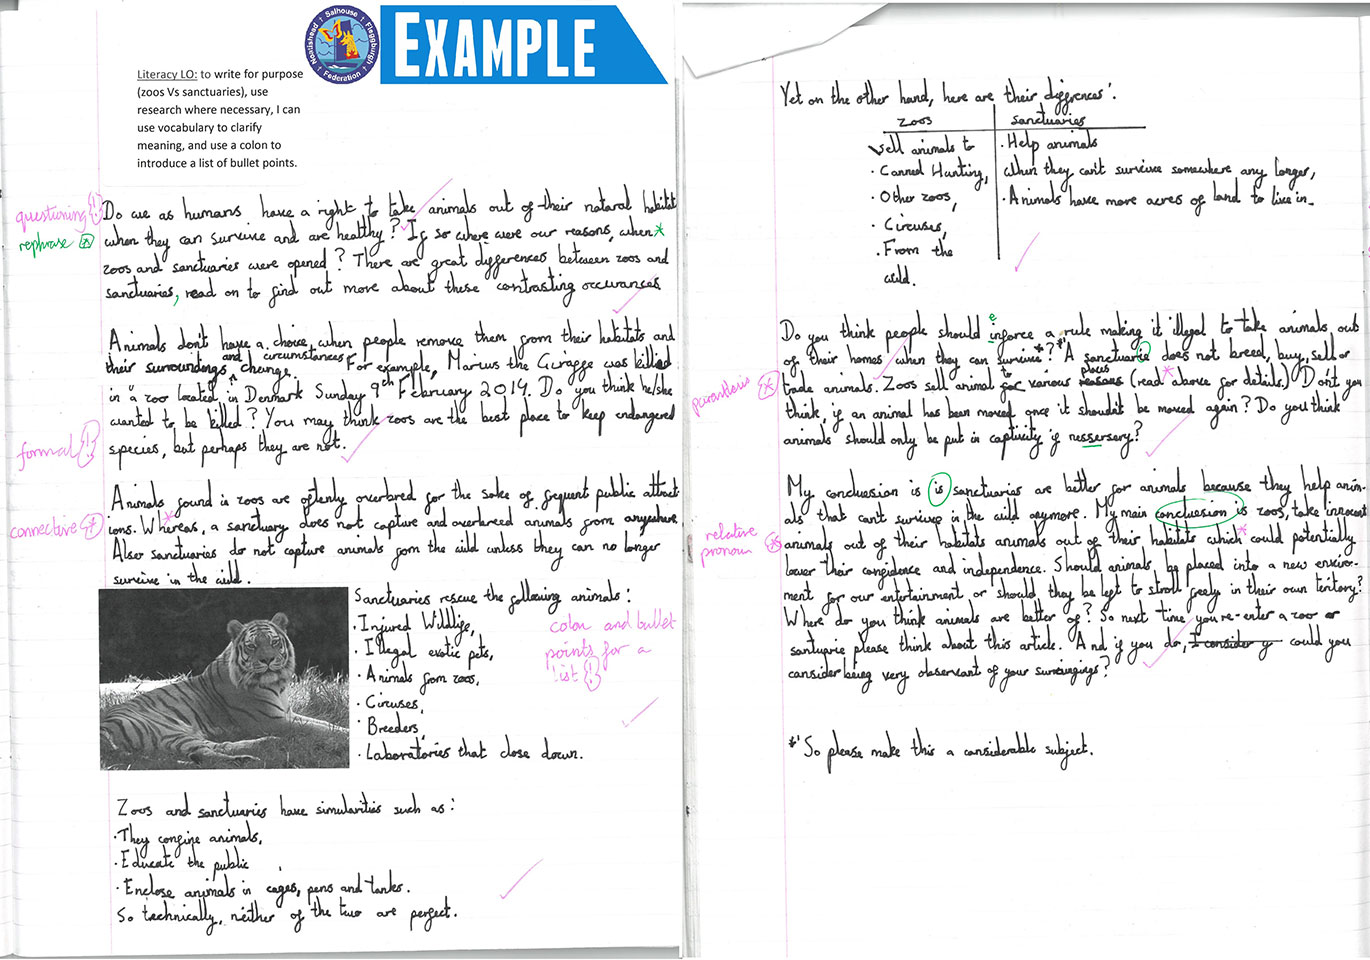 Neatishead Salhouse Fleggburgh Federation
EXAMPLE
Literacy LO: to write for purpose
(zoos Vs sanctuaries), use
research where necessary, I can
use vocabulary to clarify
meaning, and use a colon to
introduce a list of bullet points.
questioning
rephrase
Do we as humans have a right to take animals out of their natural habitat
when they can survive and are healthy? If so where were our reasons, when*
zoos and sanctuaries were opened? There are great differences between zoos and
sanctuaries, read on to find out more about these contrasting occurances
Animals don't have a choice when people remove them from their habitats and
their surroundings and circumstances change. For example, Marcus the Giraffe was killed
in a zoo located in Denmark Sunday 9th February 2014. Do you think he/she
wanted to be killed? You may think zoos are the best place to keep endangered
formal
species, but perhaps they are not.
Animals found in zoos are oftenly overbred for the sake of frequent public attract
connective
ions. Whereas, a sanctuary does not capture and overbreed animals from anywhere.
Also sanctuaries do not capture animals form the wild unless they can no longer
survive in the wild.
Sanctuaries rescue the following animals:
· Injured Wildlife,
· Illegal exotic pets,
· Animals from zoos,
· Circuses,
· Breeders,
· Laboratories that close down.
colon and bullet
points for a
list
Zoos and sanctuaries have simularities such as:
· They confine animals,
· Educate the public
· Enclose animals in cages, pens and tanks.
So technically, neither of the two are perfect.
Yet on the other hand, here are their diffrences:
Zoos
sanctuaries
Sell animals to
· Canned Hunting,
· Other zoos,
· Circuses,
· From the
wild.
· Help animals
when they can't survive somewhere any longer,
· Animals have more acres of land to live in.
Do you think people should inforce a rule making it illegal to take animals out
e
of their homes when they can survive?*' A sanctuarie does not breed, buy, sell or
parenthesis
trade animals. Zoos sell animal to various places (read above for details.) Don't you
think, if an animal has been moved once it should't be moved again? Do you think
animals should only be put in captivity if nessersery?
My concluesion is is sanctuaries are better for animals because they help anim-
als that can't survive in the wild anymore. My main concluesion is zoos, take innocent
relative
pronoun
animals out of their habitats animals out of their habitats which* could potentially
lower their confidence and independence. Should animals be placed into a new enviro-
ment for our entertainment or should they be left to stroll freely in their own teritory?
Where do you think animals are better of? So next time you re-enter a zoo or
santuarie please think about this article. And if you do, I consider y could you
consider being very observant of your surroungings?
*' So please make this a considerable subject.